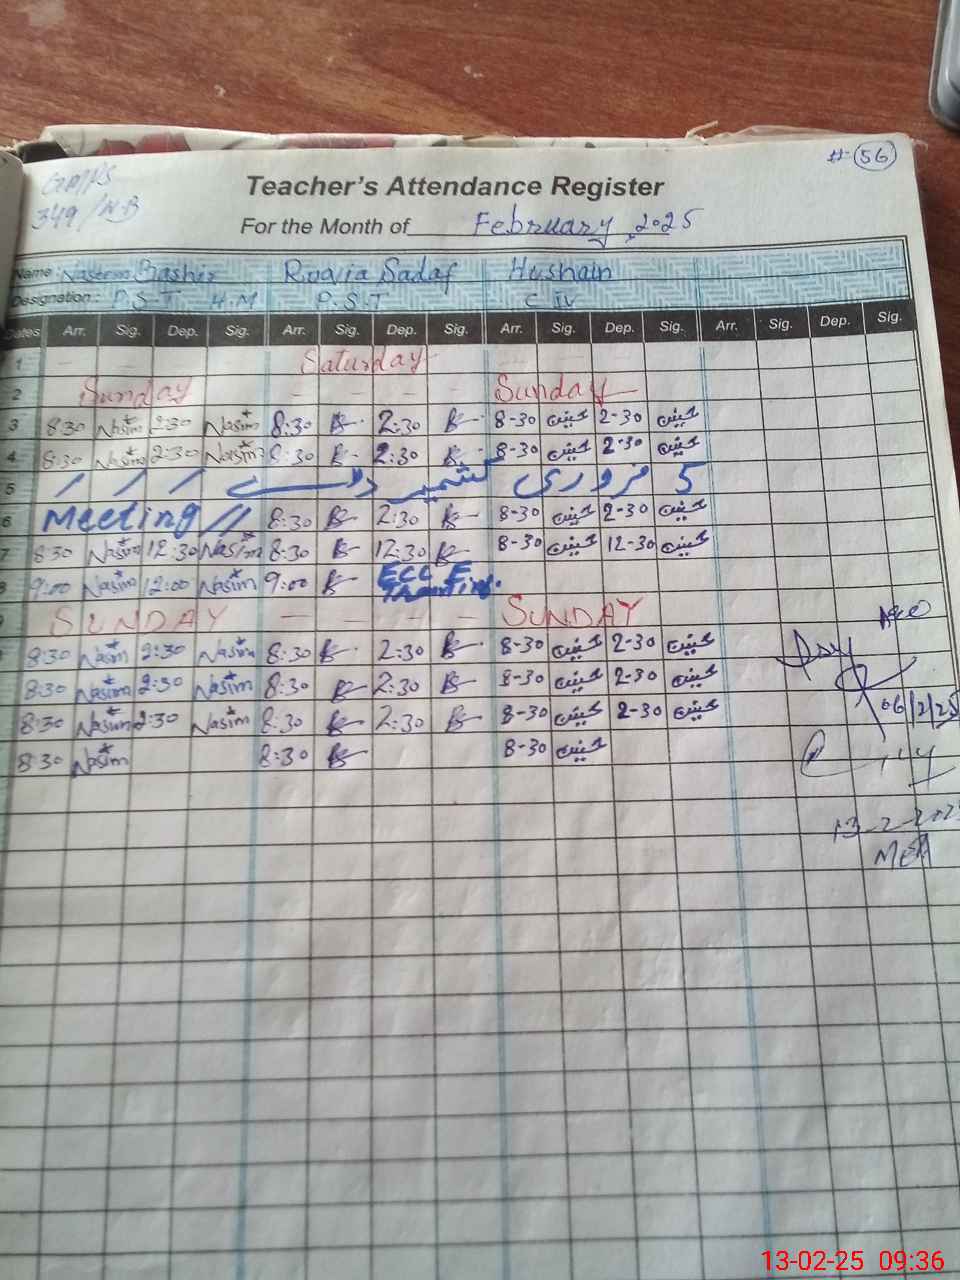 # 56
349/N.B
Teacher's Attendance Register
For the Month of February, 2025
Name: Naseem Bashir Ruqia Sadaf Hushain
Designation: P.S.T H.M P.S.T C IV
Dates Arr. Sig. Dep. Sig. Arr. Sig. Dep. Sig. Arr. Sig. Dep. Sig. Arr. Sig. Dep. Sig.
1 Saturday
2 Sunday Sunday
3 8:30 Nasim 2:30 Nasim 8:30 2:30 8-30 2-30
4 8:30 Nasim 2:30 Nasim 8:30 2:30 8-30 2-30
5 5 فروری کشمیر ڈے
6 Meeting 8:30 2:30 8-30 2-30
7 8:30 Nasim 12:30 Nasim 8:30 12:30 8-30 12-30
8 9:00 Nasim 12:00 Nasim 9:00 ECCE
SUNDAY SUNDAY
8:30 Nasim 2:30 Nasim 8:30 2:30 8-30 2-30
8:30 Nasim 2:30 Nasim 8:30 2:30 8-30 2-30
06/2/25
8:30 Nasim 2:30 Nasim 8:30 2:30 8-30 2-30
8:30 Nasim 8:30 8-30
13-2-2025
MEA
13-02-25 09:36